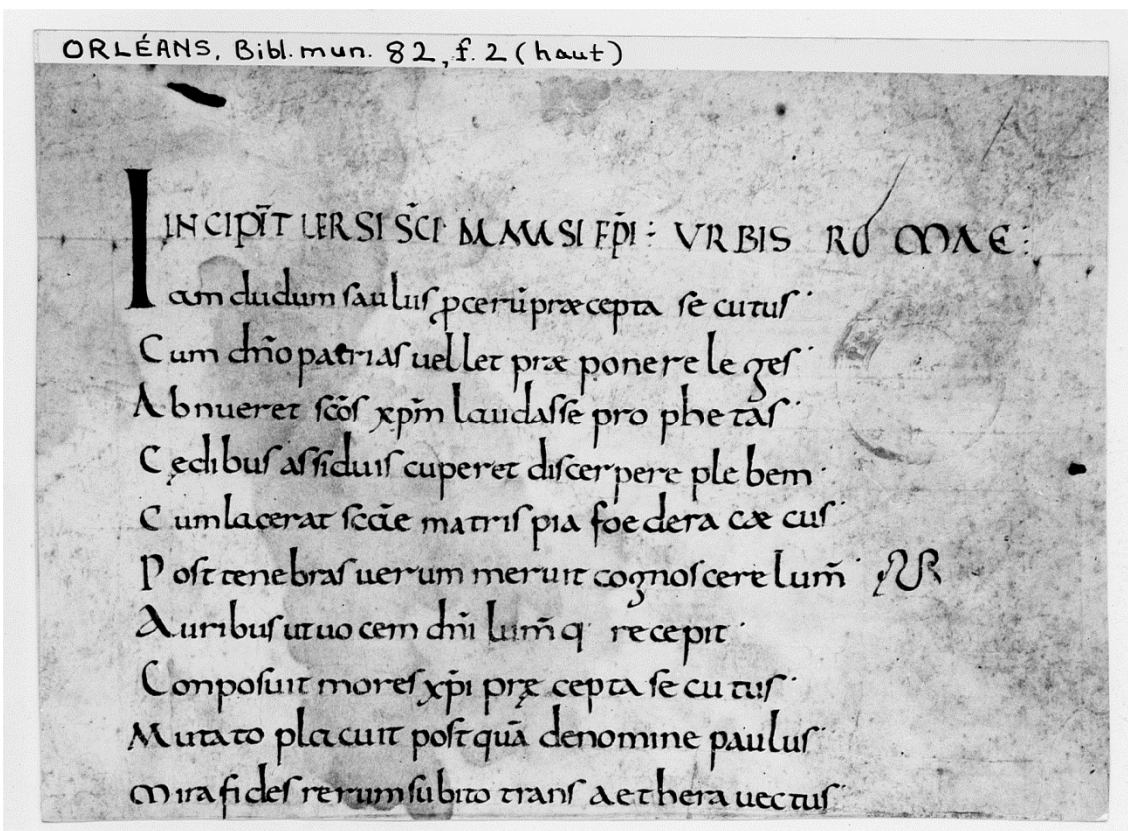 ORLÉANS, Bibl. mun. 82, f. 2 (haut)
INCIPIT̄ UERSI S̄CI DAMASI EP̄I : VRBIS ROMAE :
Iam dudum saulus ꝓcerū præcepta secutus
Cum dn̄o patrias uellet præponere leges
Abnueret sc̄os xp̄m laudasse prophetas
Cędibus assiduis cuperet discerpere plebem
Cum lacerat sc̄æ matris pia foedera cæcus
Post tenebras uerum meruit cognoscere lum̄
Auribus ut uocem dn̄i lum̄q recepit
Conposuit mores xp̄i pręcepta secutus
Mutato placuit postquā de nomine paulus
Mira fides rerum subito trans aethera uectus